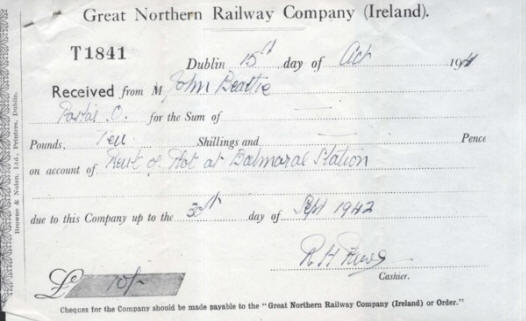 Great Northern Railway Company (Ireland).
T1841
Dublin 15th day of Oct 194
Received from M John Beattie
Postal O. for the Sum of
Pounds, Ten Shillings and Pence
on account of Rent of Plot at Balmoral Station
due to this Company up to the 30th day of Sept 1942
R H
Cashier.
£ 10/-
Cheques for the Company should be made payable to the "Great Northern Railway Company (Ireland) or Order."
Browne & Nolan, Ltd., Printers, Dublin.